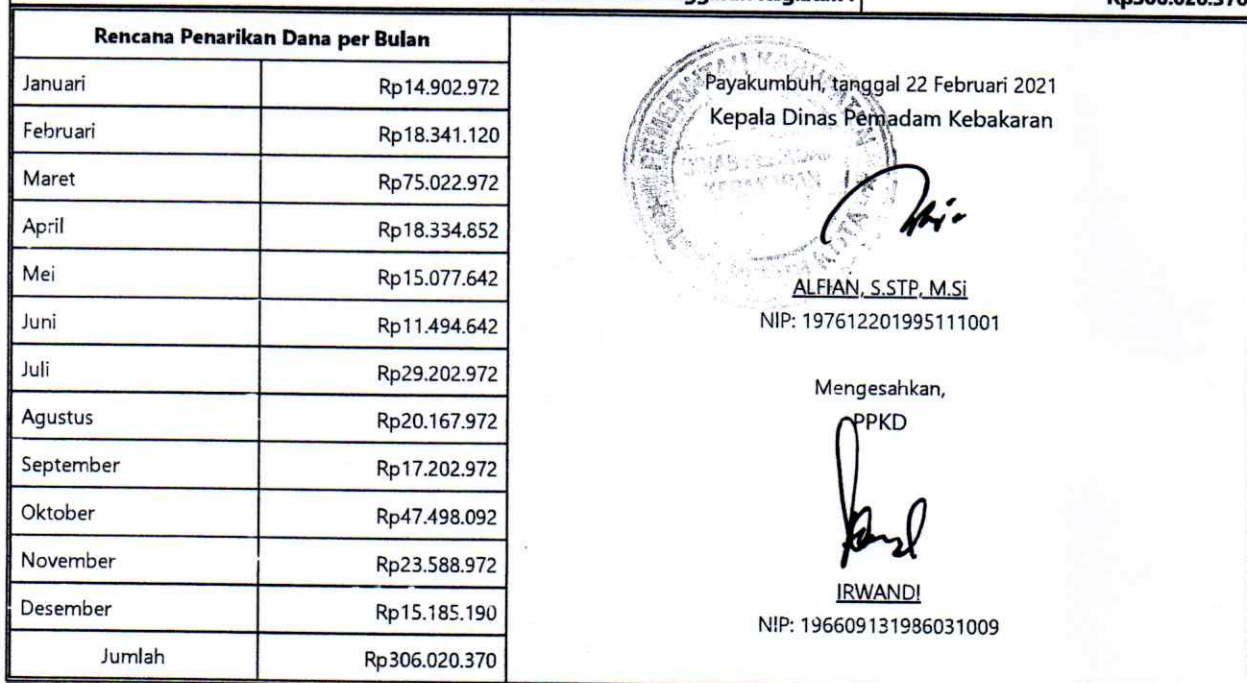 Rp306.020.370
Rencana Penarikan Dana per Bulan
Januari Rp14.902.972
Februari Rp18.341.120
Maret Rp75.022.972
April Rp18.334.852
Mei Rp15.077.642
Juni Rp11.494.642
Juli Rp29.202.972
Agustus Rp20.167.972
September Rp17.202.972
Oktober Rp47.498.092
November Rp23.588.972
Desember Rp15.185.190
Jumlah Rp306.020.370
Payakumbuh, tanggal 22 Februari 2021
Kepala Dinas Pemadam Kebakaran
PEMERINTAH KABUPATEN
ALFIAN, S.STP, M.Si
NIP: 197612201995111001
Mengesahkan,
PPKD
IRWANDI
NIP: 196609131986031009